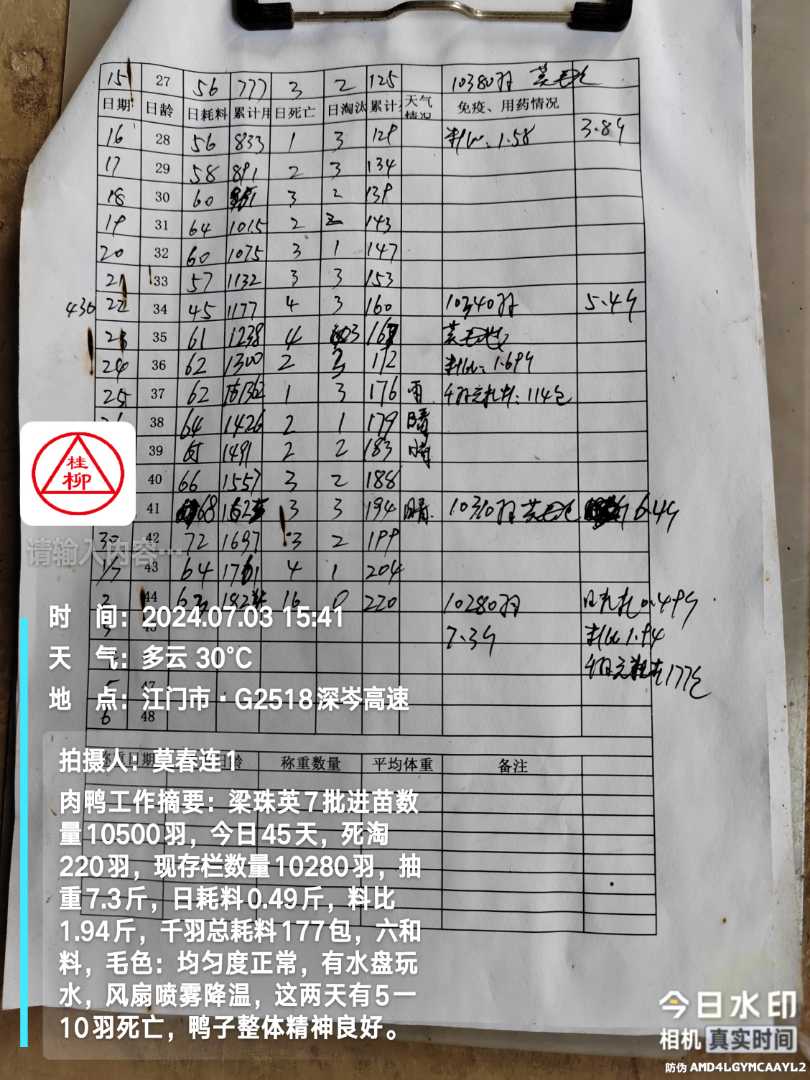 15 27 56 777 3 2 125 10380羽 莫
日期 日龄 日耗料 累计用 日死亡 日淘汰 累计 天气情况 免疫、用药情况
16 28 56 833 1 3 129 料比:1.58 3.8斤
17 29 58 891 2 3 134
18 30 60 3 2 139
19 31 64 1015 2 2 143
20 32 60 1075 3 1 147
21 33 57 1132 3 3 153
430 22 34 45 1177 4 3 160 10340羽 5.4斤
23 35 61 1238 4 3 167 莫
24 36 62 1300 2 3 172 料比:1.69
25 37 62 1362 1 3 176 雨 114包
38 64 1426 2 1 179 晴
39 65 1491 2 2 183 晴
40 66 1557 3 2 188
41 68 1625 3 3 194 晴 10310羽 莫 6.4斤
30 42 72 1697 3 2 199
43 64 1761 4 1 204
2 44 16 0 220 10280羽 0.49斤
3 7.3斤 料比1.94
177包
5 47
6 48
称重数量 平均体重 备注
桂柳
请输入内容…
时 间：2024.07.03 15:41
天 气：多云 30°C
地 点：江门市·G2518深岑高速
拍摄人：莫春连1
肉鸭工作摘要：梁珠英7批进苗数
量10500羽，今日45天，死淘
220羽，现存栏数量10280羽，抽
重7.3斤，日耗料0.49斤，料比
1.94斤，千羽总耗料177包，六和
料，毛色：均匀度正常，有水盘玩
水，风扇喷雾降温，这两天有5一
10羽死亡，鸭子整体精神良好。
今日水印
相机 真实时间
防伪 AMD4LGYMCAAYL2